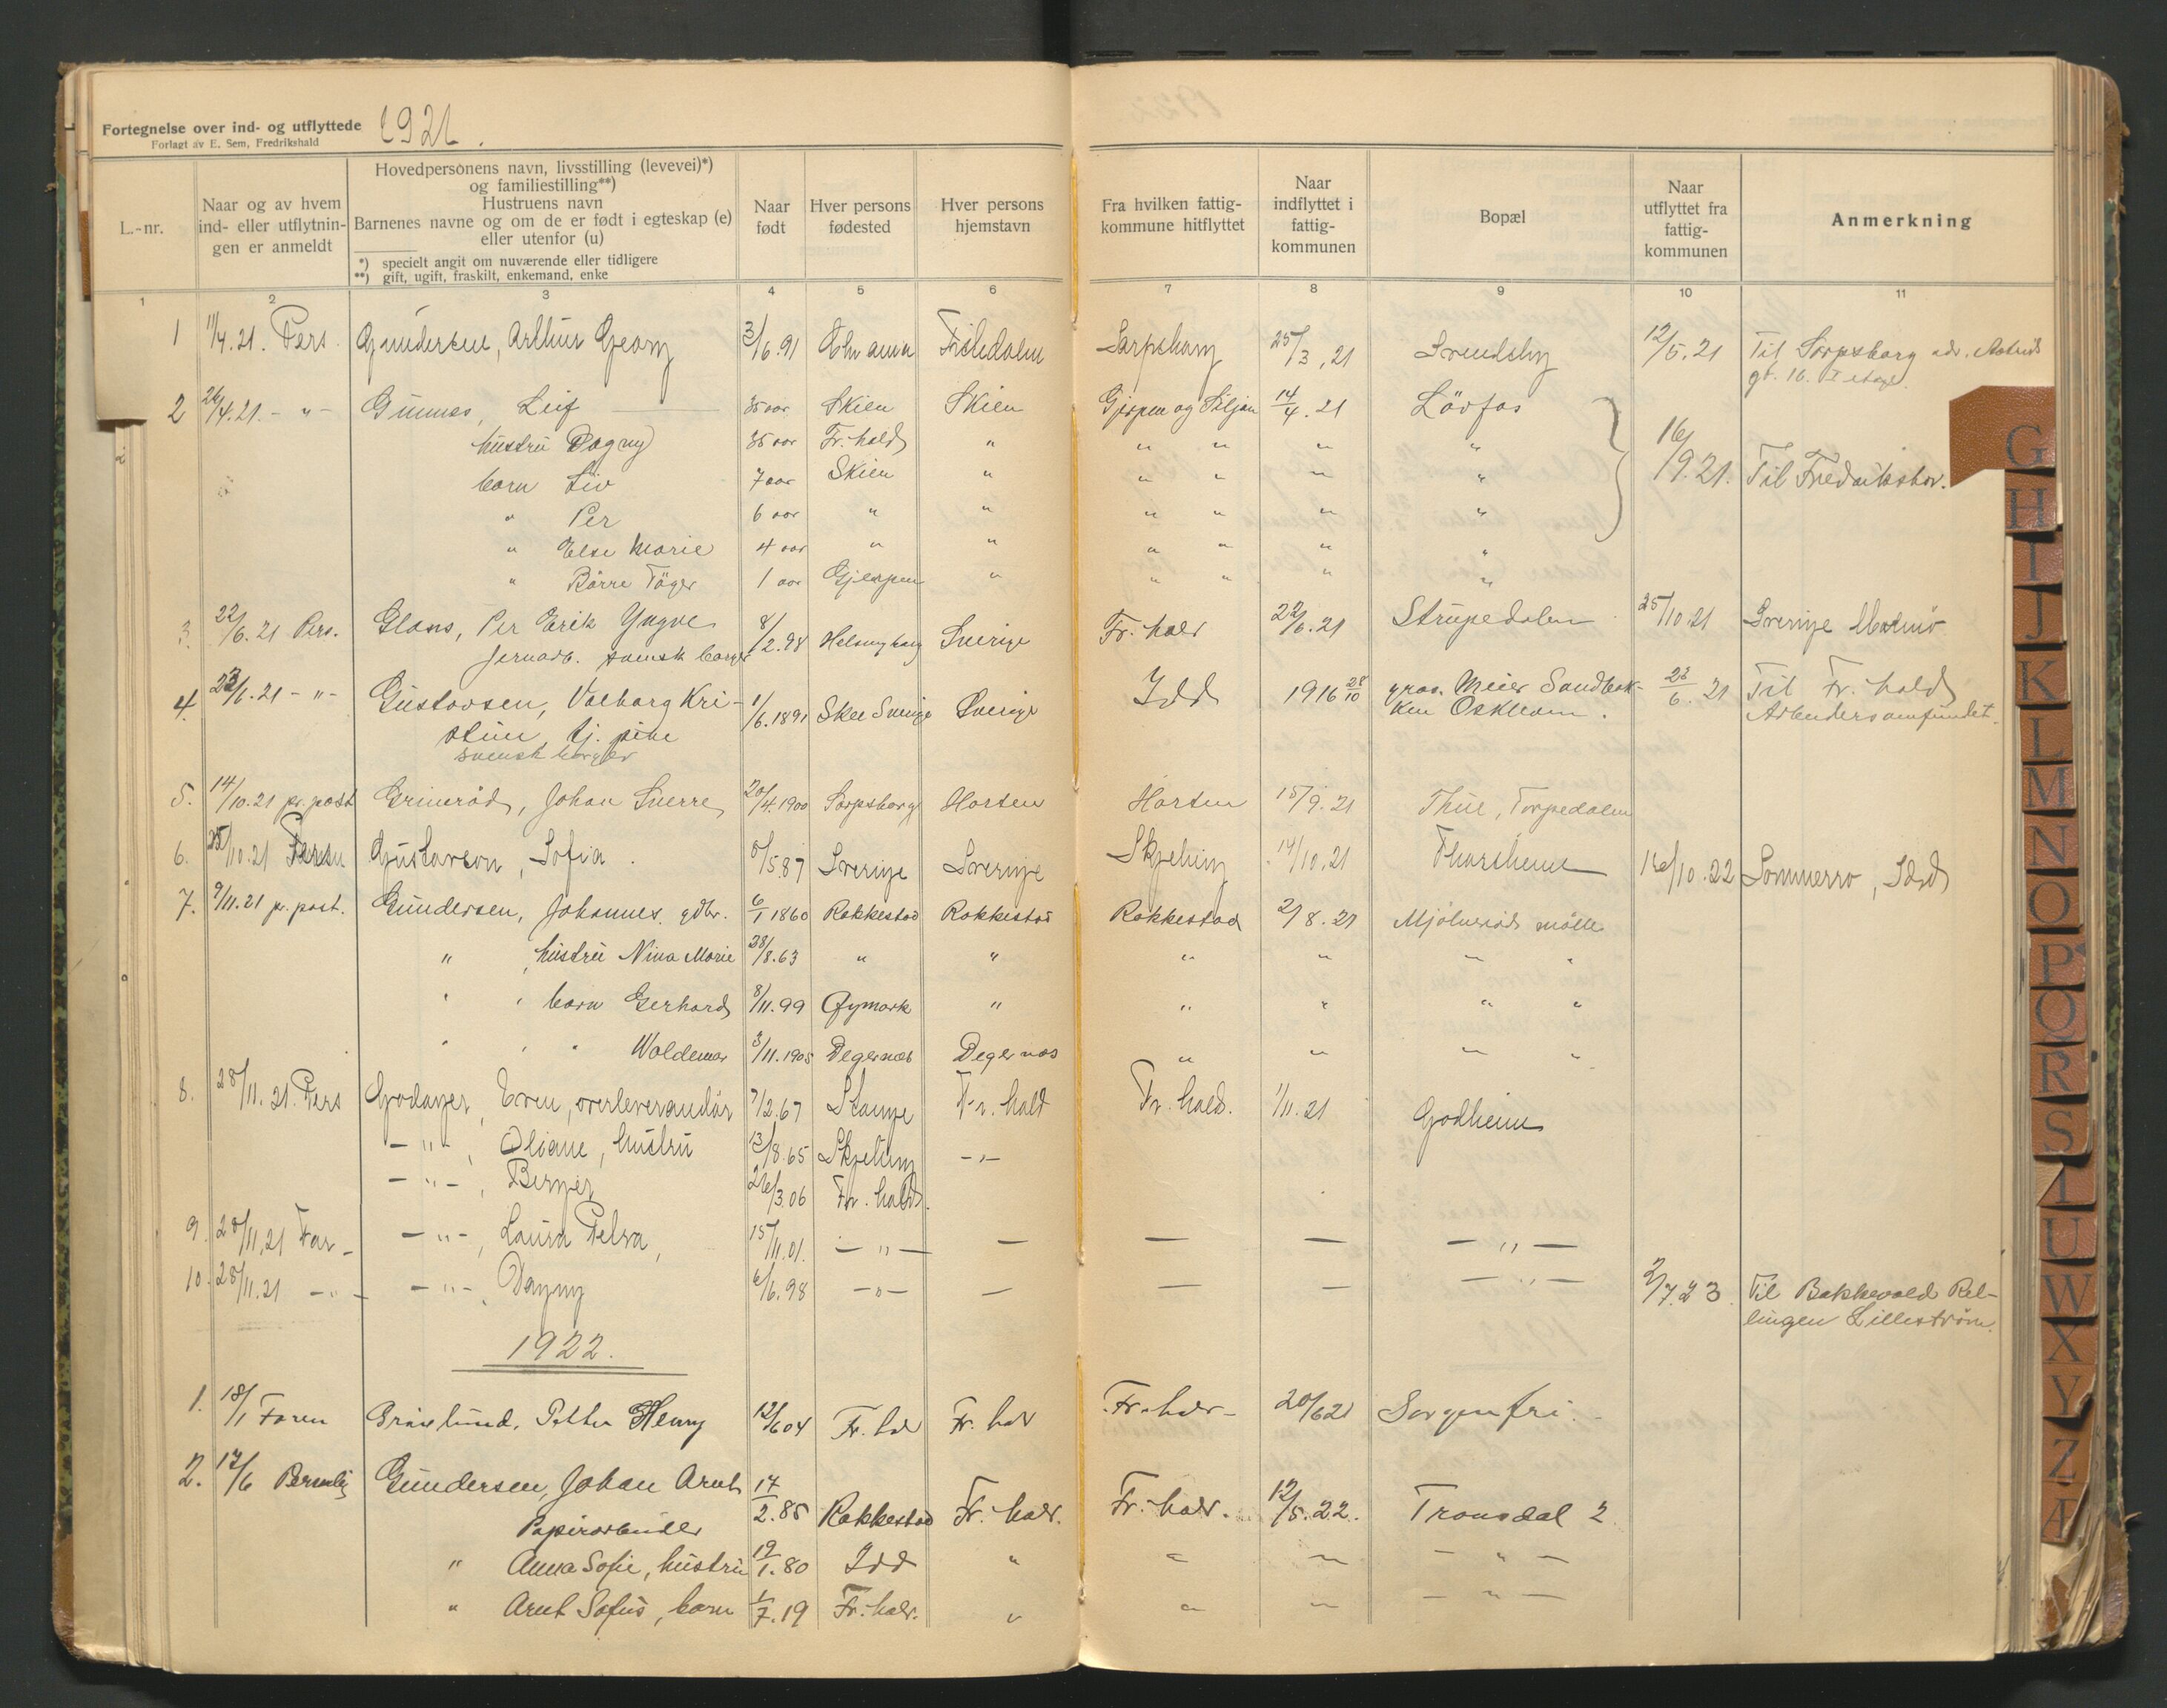 Fortegnelse over ind- og utflyttede 1921.
Forlagt av E. Sem, Fredrikshald
L.-nr.
Naar og av hvem
ind- eller utflytnin-
gen er anmeldt
Hovedpersonens navn, livsstilling (levevei)*)
og familiestilling**)
Hustruens navn
Barnenes navne og om de er født i egteskap (e)
eller utenfor (u)
*) specielt angit om nuværende eller tidligere
**) gift, ugift, fraskilt, enkemand, enke
Naar
født
Hver persons
fødested
Hver persons
hjemstavn
Fra hvilken fattig-
kommune hitflyttet
Naar
indflyttet i
fattig-
kommunen
Bopæl
Naar
utflyttet fra
fattig-
kommunen
Anmerkning
1 2 3 4 5 6 7 8 9 10 11
1 11/4.21. Pers. Gundersen, Arthur Georg 3/6.91 Sarpsborg 25/3.21 Svendsby 12/5.21 Til Sarpsborg adr. Astrids
gt. 16. I etage.
2 26/4.21. - " - Gunnes, Leif 35 aar Skien Skien Gjerpen og Siljan 14/4.21 Lövfos
hustru Dagny 35 aar Fr.hald " " " " " 16/9.21. Til Fredrikshav.
barn Liv 7 aar Skien " " " " "
" Per 6 aar " " " " " "
" Else Marie 4 aar " " " " " "
" Börre Töger 1 aar Gjerpen " " " " "
3. 22/6.21 Pers. Glans, Per Erik Yngve 8/2.98 Helsingborg Sverige Fr.hald 22/6.21 Strupedalen 25/10.21 Sverige Malmö
jernarb. svensk borger
4. 23/6.21 - " - Gustavsen, Valborg Kri- 1/6.1891 Skee Sverige Sverige Idd 1916 28/10 Meier Sandbak- 28/6.21 Til Fr.hald
stine tj. pike ken Oskleiven. Arbeidersamfundet.
svensk borger
5. 14/10.21 pr. post Grimeröd, Johan Sverre 20/4.1900 Sarpsborg Horten Horten 15/9.21 Thue, Torpedalen
6. 25/10.21 Gustavson, Sofia. 8/5.87 Sverige Sverige Skjeberg 14/10.21 Thorsheim 16/10.22 Sommerro, Idd
7. 9/11.21 pr. post. Gundersen, Johannes, gdbr. 6/1 1860 Rakkestad Rakkestad Rakkestad 2/8.21 Mjölneröd mölle
" , hustru Nina Marie 28/8.63 " " " " " "
" " barn Gerhard 8/11.99 Øymark " " " " "
" " " Waldemar 3/11.1905 Degernes Degernes " " " "
8. 28/11.21. Pers Godager, Even, overleverandör 7/2.67 Stange Fr.hald Fr.hald. 1/11.21 Godheim
- " - , Oliane, hustru 13/8.65 Skjeberg - " -
- " - , Birger 26/3.06 Fr.hald.
9. 28/11.21 Far - - " - , Laura Petra, 15/11.01. - " - — — — - " -
10. 28/11.21 - " - - " - , Dagny 6/6.98 - " - — — — - " - 2/7.23. Til Bakkevold Rel-
lingen Lilleström.
1922.
1. 18/1 Faren Petter Henry 12/6 04 Fr.hd Fr.hald Fr.hald - 20/6 21 Sorgenfri.
2. 17/6 Personlig Gundersen, Johan Arnt 17/2.85 Rakkestad Fr.hald. Fr.hald. 12/5.22. Tronsdal 2
Papirarbeider
" Anna Sofie, hustru 19/1.80 Idd " " " - " -
" Arnt Sofus, barn 1/7.19 Fr.hald. " " " - " -
G
H
I
J
K
L
M
N
O
P
Q
R
S
T
U
W
X
Y
Z
Æ